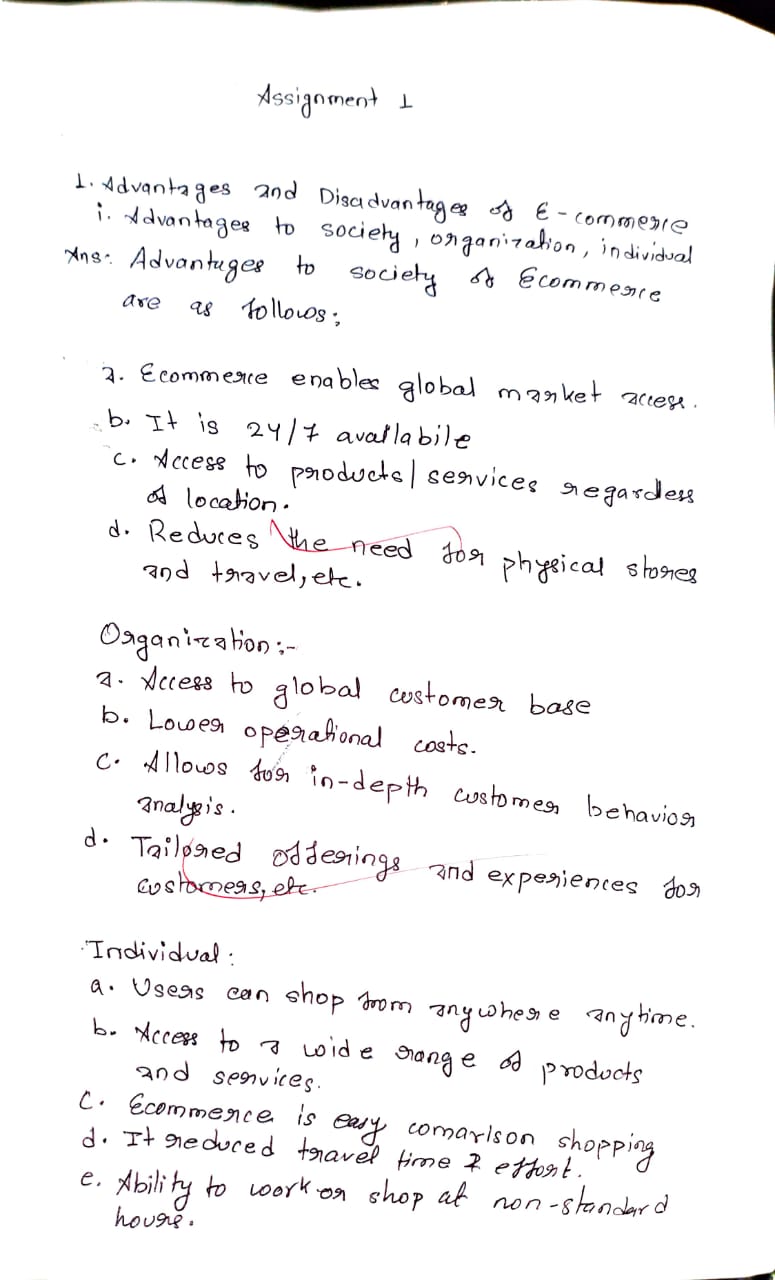 Assignment 1
1. Advantages and Disadvantages of E-commerce
i. Advantages to society, organization, individual
Ans:. Advantages to society of Ecommerce
are as follows:
a. Ecommerce enables global market access.
b. It is 24/7 availabile
c. Access to products/services regardess
of location.
d. Reduces the need for physical stores
and travel, etc.
Organization:-
a. Access to global customer base
b. Lower operational costs.
c. Allows for in-depth customer behavior
analysis.
d. Tailored offerings and experiences for
customers, etc.
Individual:
a. Users can shop from anywhere anytime.
b. Access to a wide range of products
and services.
c. Ecommerce is easy comarison shopping
d. It reduced travel time & effort.
e. Ability to work or shop at non-standard
hours.